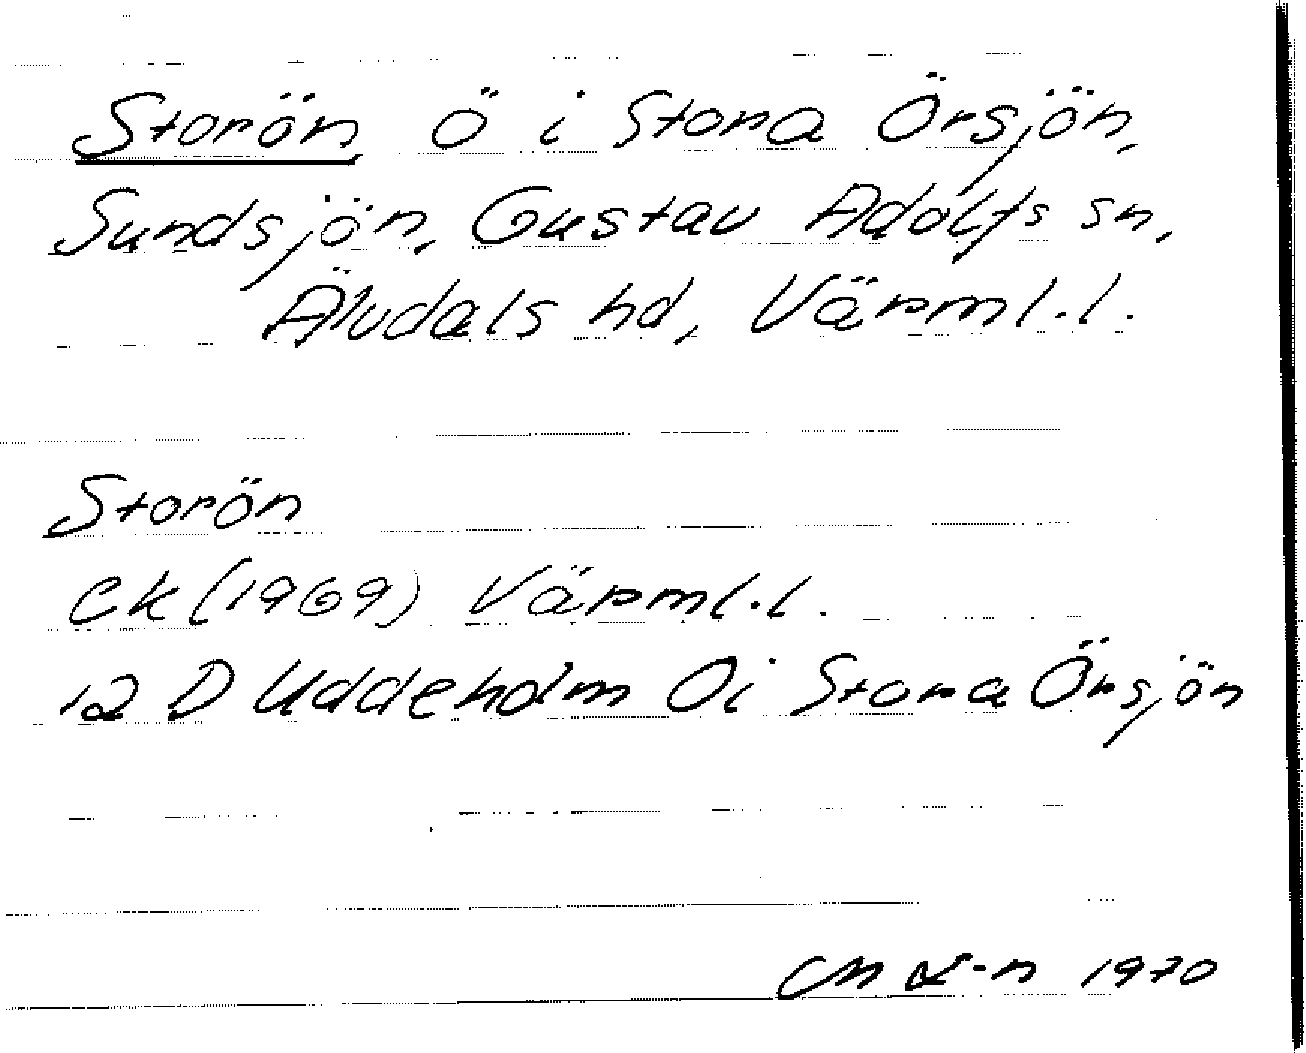 Storön Ö i Stora Örsjön,
Sundsjön, Gustav Adolfs sn,
Älvdals hd, Värml.l.
Storön
Ek (1969) Värml.l.
12 D Uddeholm Ö i Stora Örsjön
1970